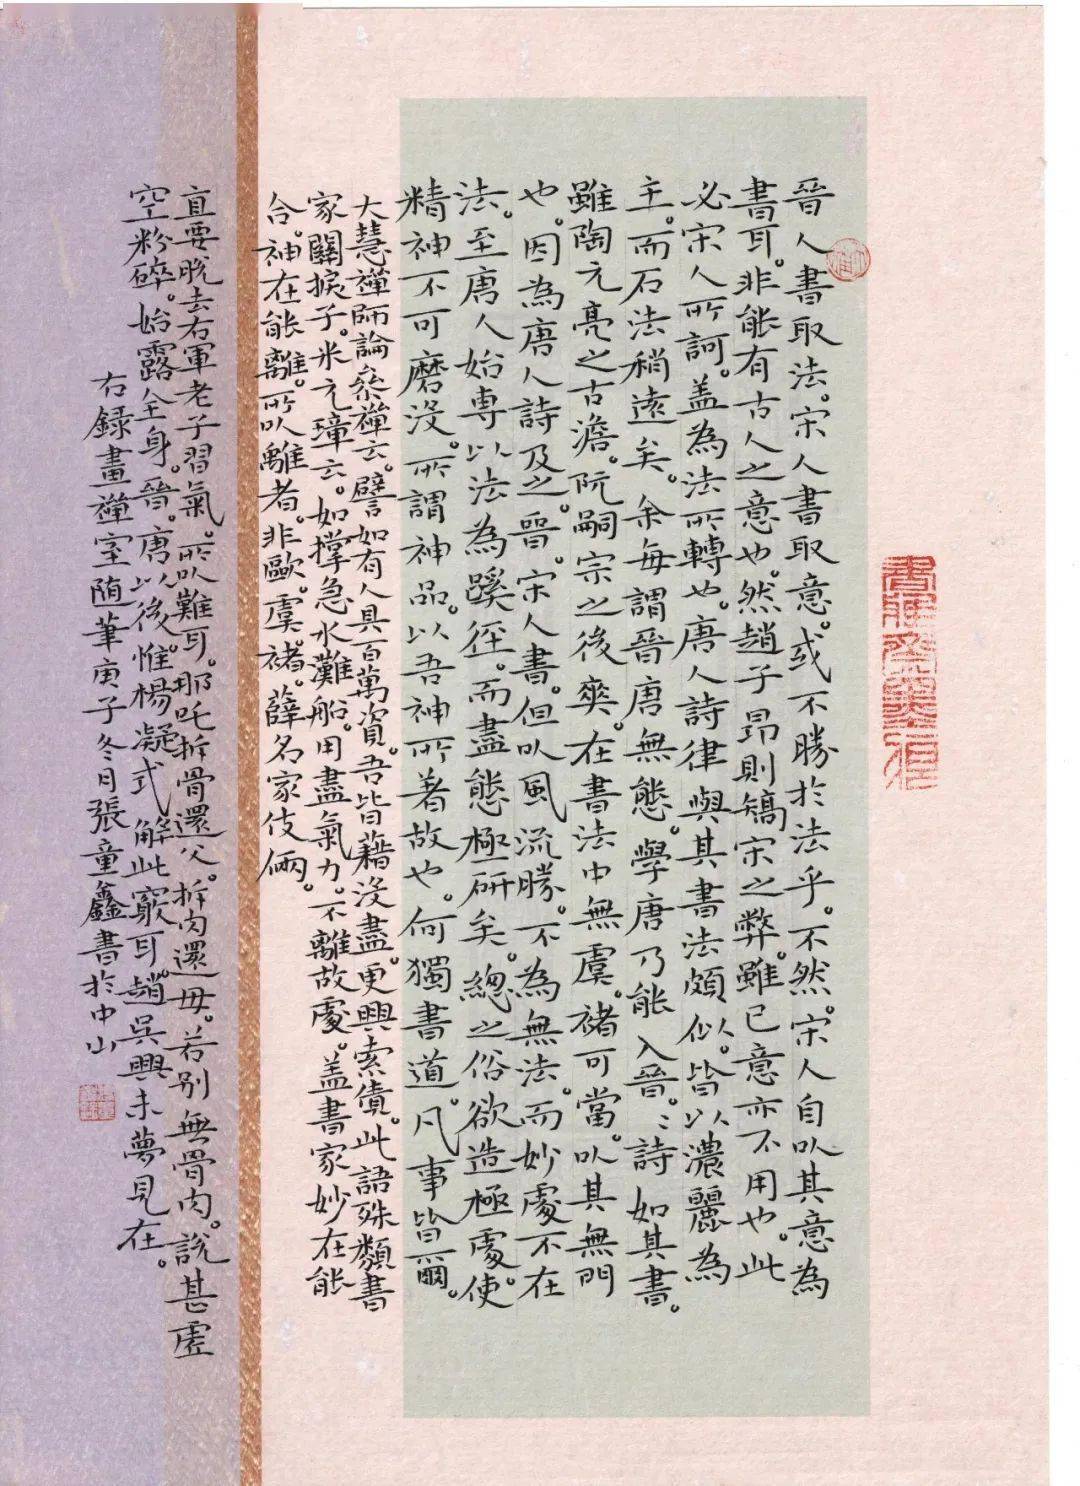 晉人書取法。宋人書取意。或不勝於法乎。不然。宋人自以其意為
書耳。非能有古人之意也。然趙子昂則矯宋之弊。雖己意亦不用也。此
必宋人所訶。盖為法所轉也。唐人詩律與其書法頗似。皆以濃麗為
主。而石法稍遠矣。余每謂晉唐無態。學唐乃能入晉。〻詩如其書。
雖陶元亮之古澹。阮嗣宗之後爽。在書法中無虞。褚可當。以其無門
也。因為唐人詩及之。晉。宋人書。但以風流勝。不為無法。而妙處不在
法。至唐人始専以法為蹊徑。而盡態極研矣。總之俗欲造極處。使
精神不可磨沒。所謂神品。以吾神所著故也。何獨書道。凡事皆爾。
大慧禪師論叅禪云。譬如有人具百萬資。吾皆藉沒盡。更與索債。此語殊類書
家關捩子。米元璋云。如撑急水灘船。用盡氣力。不離故處。盖書家妙在能
合。神在能離。所以離者。非歐。虞。褚。薛名家伎倆。
直要脫去右軍老子習氣。所以難耳。那吒拆骨還父。拆肉還母。若别無骨肉。說甚虛
空粉碎。始露全身。晉。唐以後。惟楊凝式解此竅耳。趙吳興未夢見在。
右錄畫禪室随筆庚子冬月張童鑫書於中山